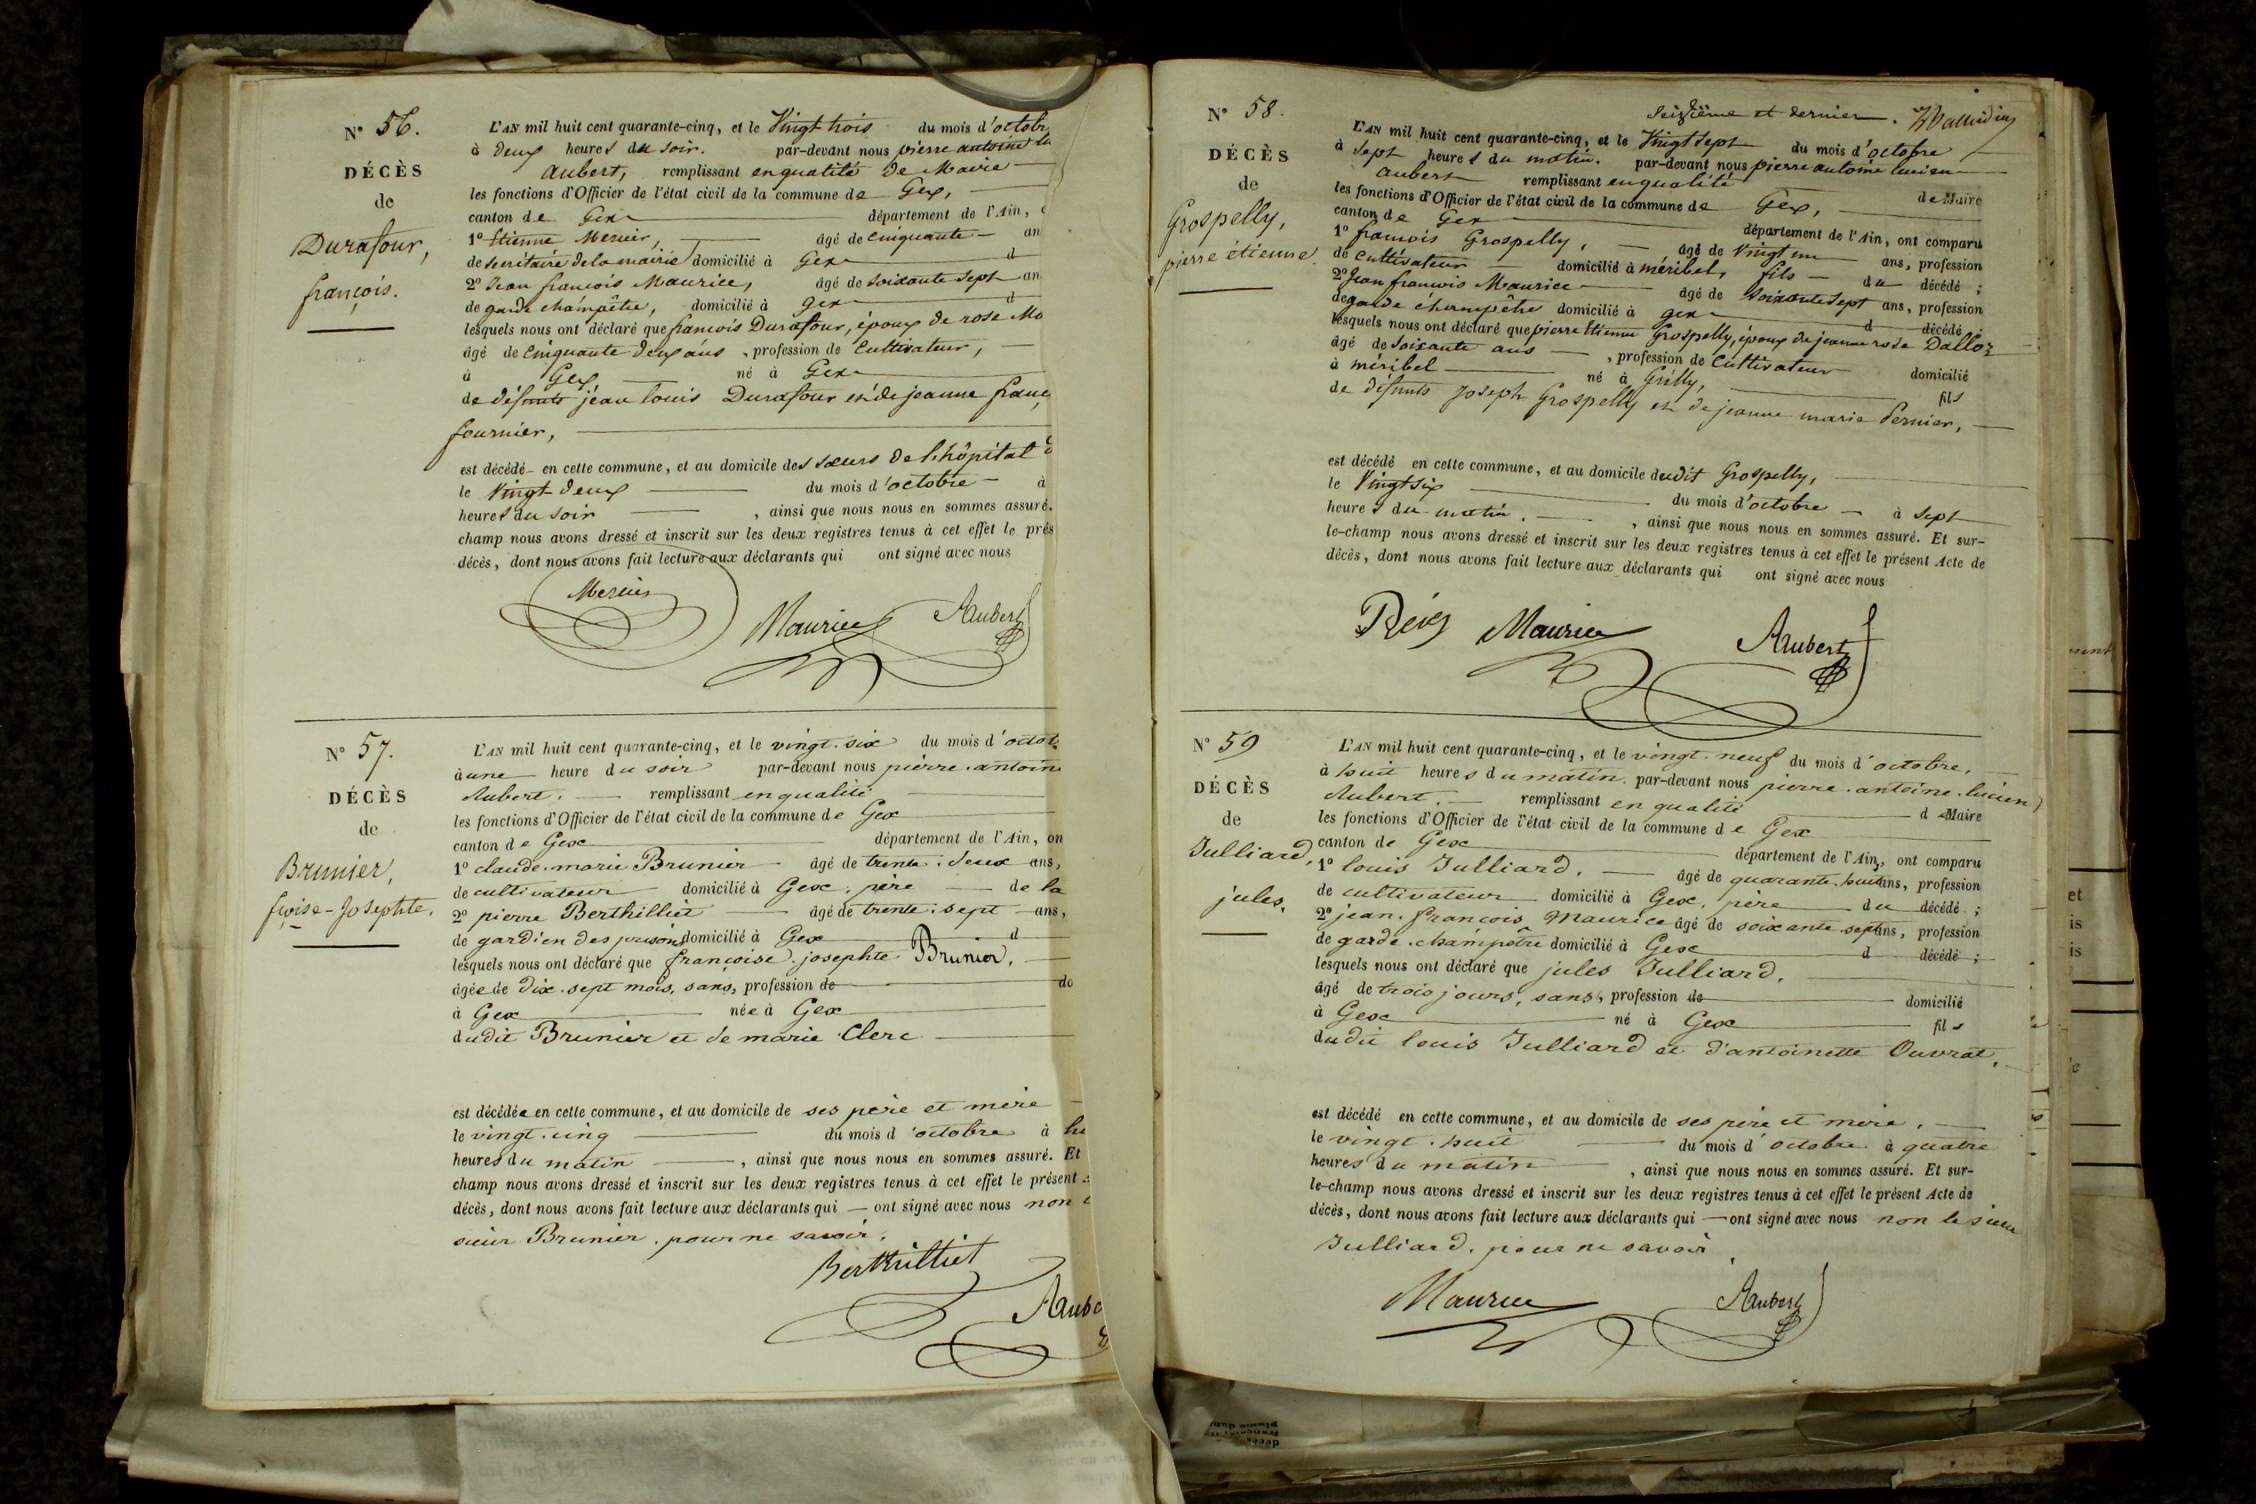 N° 56.
DÉCÈS
de
Durafour,
françois.
L'AN mil huit cent quarante-cinq, et le Vingt trois du mois d'octobr
à deux heures du soir. par-devant nous pierre antoine lu
Aubert, remplissant en qualité de Maire
les fonctions d'Officier de l'état civil de la commune de Gex,
canton de Gex département de l'Ain,
1° Etienne Mercier, âgé de cinquante an
de secrétaire de la mairie domicilié à Gex d
2° Jean françois Maurice, âgé de soixante sept an
de garde champêtre, domicilié à gex d
lesquels nous ont déclaré que françois Durafour, époux de rose Mo
âgé de cinquante deux ans, profession de Cultivateur,
à Gex né à Gex
de défunts jean louis Durafour et de jeanne franç
fournier,
est décédé en cette commune, et au domicile des sœurs de l'hôpital
le Vingt-deux du mois d'octobre à
heures du soir, ainsi que nous nous en sommes assuré.
champ nous avons dressé et inscrit sur les deux registres tenus à cet effet le prés
décès, dont nous avons fait lecture aux déclarants qui ont signé avec nous
Mercier
Maurice Aubert
N° 57.
DÉCÈS
de
Brunier,
fçoise-Josephte.
L'AN mil huit cent quarante-cinq, et le vingt-six du mois d'octob
à une heure du soir par-devant nous pierre-antoin
Aubert. remplissant en qualité
les fonctions d'Officier de l'état civil de la commune de Gex
canton de Gex département de l'Ain, on
1° claude-marie Brunier âgé de trente-deux ans,
de cultivateur domicilié à Gex, père de la
2° pierre Berthilliet âgé de trente-sept ans,
de gardien des prisons domicilié à Gex d
lesquels nous ont déclaré que françoise-josephte Brunier,
âgée de dix-sept mois, sans, profession de do
à Gex née à Gex
dudit Brunier et de marie Clerc
est décédée en cette commune, et au domicile de ses père et mère
le vingt-cinq du mois d'octobre à hu
heures du matin, ainsi que nous nous en sommes assuré. Et
champ nous avons dressé et inscrit sur les deux registres tenus à cet effet le présent
décès, dont nous avons fait lecture aux déclarants qui — ont signé avec nous non
sieur Brunier, pour ne savoir.
Berthilliet
Aube
seizième et dernier.
N° 58.
DÉCÈS
de
Grospelly,
pierre étienne.
L'AN mil huit cent quarante-cinq, et le Vingt sept du mois d'octobre
à sept heures du matin. par-devant nous pierre antoine lucien
Aubert remplissant en qualité de Maire
les fonctions d'Officier de l'état civil de la commune de Gex,
canton de Gex département de l'Ain, ont comparu
1° françois Grospelly, âgé de Vingt un ans, profession
de Cultivateur domicilié à méribel, fils du décédé ;
2° Jean françois Maurice âgé de soixante sept ans, profession
de garde champêtre domicilié à gex d décédé ;
lesquels nous ont déclaré que pierre Etienne Grospelly, époux de jeanne rose Dalloz
âgé de soixante ans, profession de Cultivateur domicilié
à méribel né à Grilly, fils
de défunts Joseph Grospelly et de jeanne marie Pernier,
est décédé en cette commune, et au domicile dudit Grospelly,
le Vingt six du mois d'octobre à sept
heures du matin, ainsi que nous nous en sommes assuré. Et sur-
le-champ nous avons dressé et inscrit sur les deux registres tenus à cet effet le présent Acte de
décès, dont nous avons fait lecture aux déclarants qui ont signé avec nous
Maurice Aubert
N° 59
DÉCÈS
de
Julliard,
jules.
L'AN mil huit cent quarante-cinq, et le vingt-neuf du mois d'octobre,
à huit heures du matin. par-devant nous pierre-antoine-lucien
Aubert. remplissant en qualité de Maire
les fonctions d'Officier de l'état civil de la commune de Gex
canton de Gex département de l'Ain, ont comparu
1° louis Julliard, âgé de quarante-huit ans, profession
de cultivateur domicilié à Gex, père du décédé ;
2° jean-françois Maurice âgé de soixante-sept ans, profession
de garde-champêtre domicilié à Gex d décédé ;
lesquels nous ont déclaré que jules Julliard,
âgé de trois jours, sans, profession de domicilié
à Gex né à Gex fils
dudit louis Julliard et d'antoinette Ouvrat,
est décédé en cette commune, et au domicile de ses père et mère,
le vingt-huit du mois d'octobre à quatre
heures du matin, ainsi que nous nous en sommes assuré. Et sur-
le-champ nous avons dressé et inscrit sur les deux registres tenus à cet effet le présent Acte de
décès, dont nous avons fait lecture aux déclarants qui — ont signé avec nous non le sieur
Julliard, pour ne savoir
Maurice Aubert